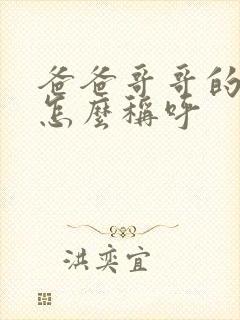 爸爸哥哥的
怎麼稱呼
洪奕宜